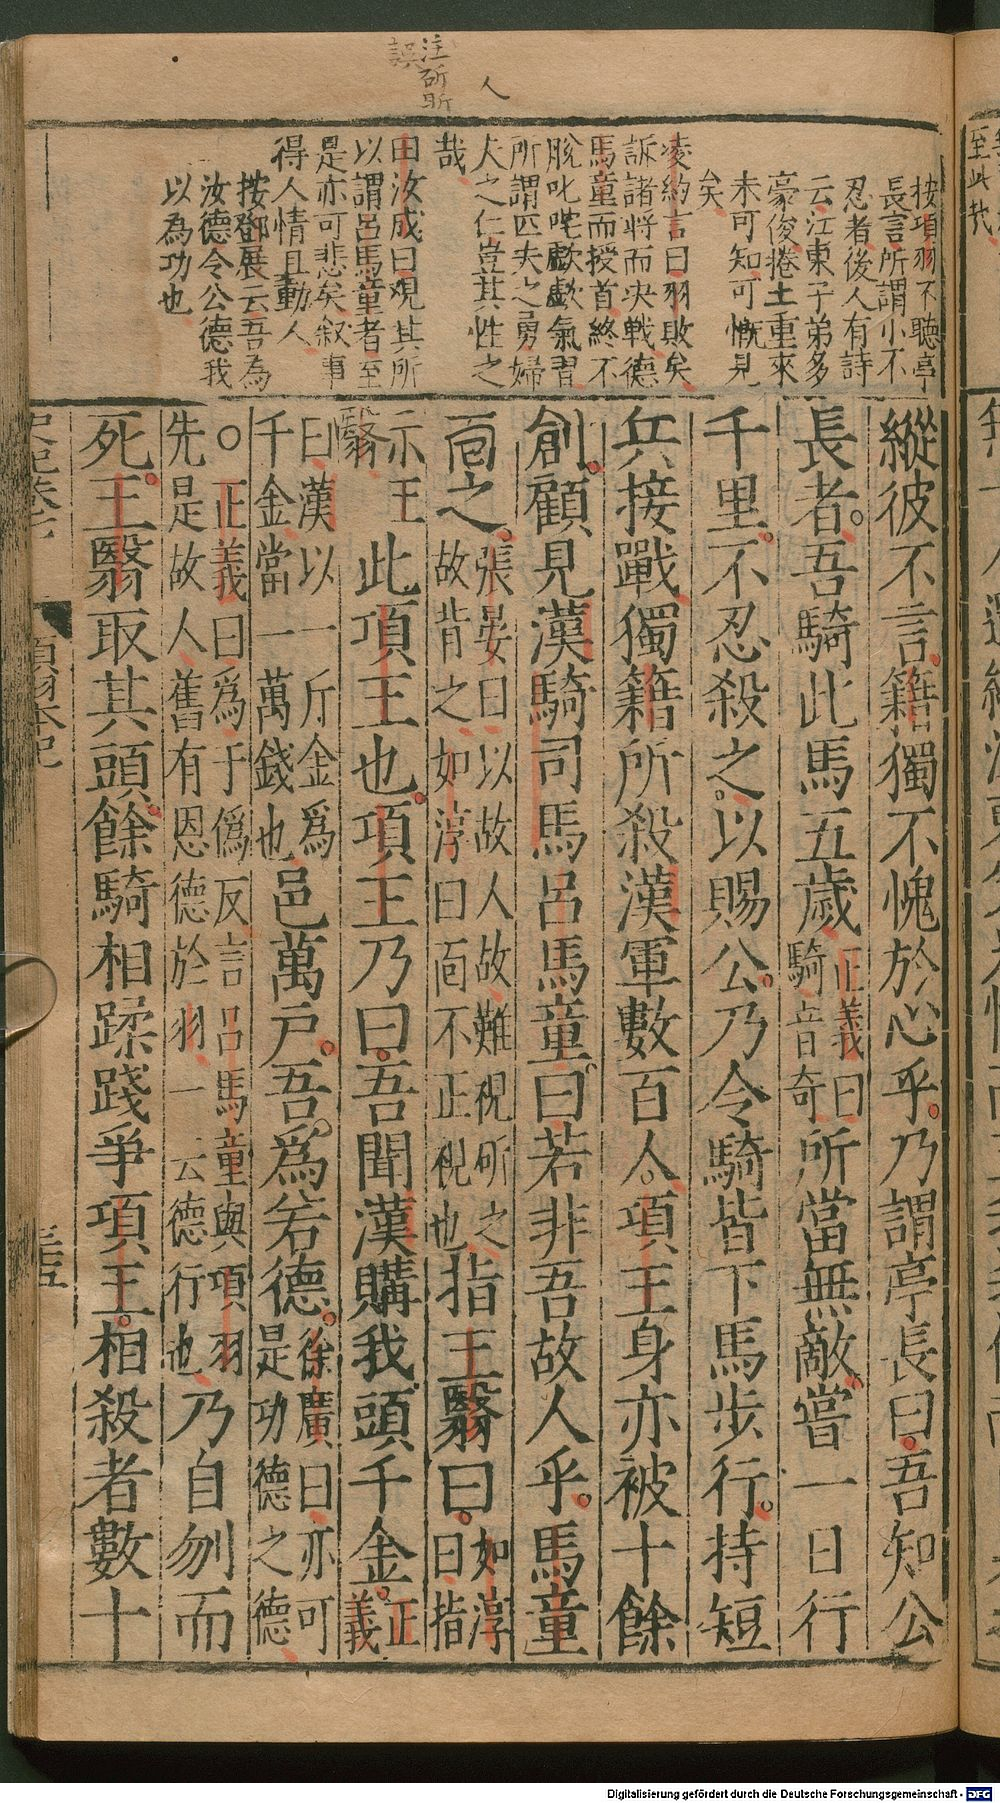 注斫
誤
斫昕
人
按項羽不聽亭
長言所謂小不
忍者後人有詩
云江東子弟多
豪俊捲土重來
未可知可慨見
矣
凌約言曰羽敗矣
訴諸將而決戰德
馬童而授首終不
脫叱咤歔欷氣習
所謂匹夫之勇婦
人之仁豈其性之
哉
田汝成曰觀其所
以謂呂馬童者至
是亦可悲矣叙事
得人情且動人
按鄧展云吾為
汝德令公德我
以為功也
縱彼不言籍獨不愧於心乎乃謂亭長曰吾知公
長者吾騎此馬五歲正義曰騎音奇所當無敵嘗一日行
千里不忍殺之以賜公乃令騎皆下馬步行持短
兵接戰獨籍所殺漢軍數百人項王身亦被十餘
創顧見漢騎司馬呂馬童曰若非吾故人乎馬童
面之張晏曰以故人故難視斫之故背之如淳曰面不正視也指王翳曰如淳曰指
示王翳此項王也項王乃曰吾聞漢購我頭千金正義
曰漢以一斤金爲千金當一萬錢也邑萬戶吾爲若德徐廣曰亦可是功德之德
○正義曰爲于僞反言呂馬童與項羽先是故人舊有恩德於羽一云德行也乃自刎而
死王翳取其頭餘騎相蹂踐爭項王相殺者數十
史記卷七
項羽本紀
Digitalisierung gefördert durch die Deutsche Forschungsgemeinschaft - DFG